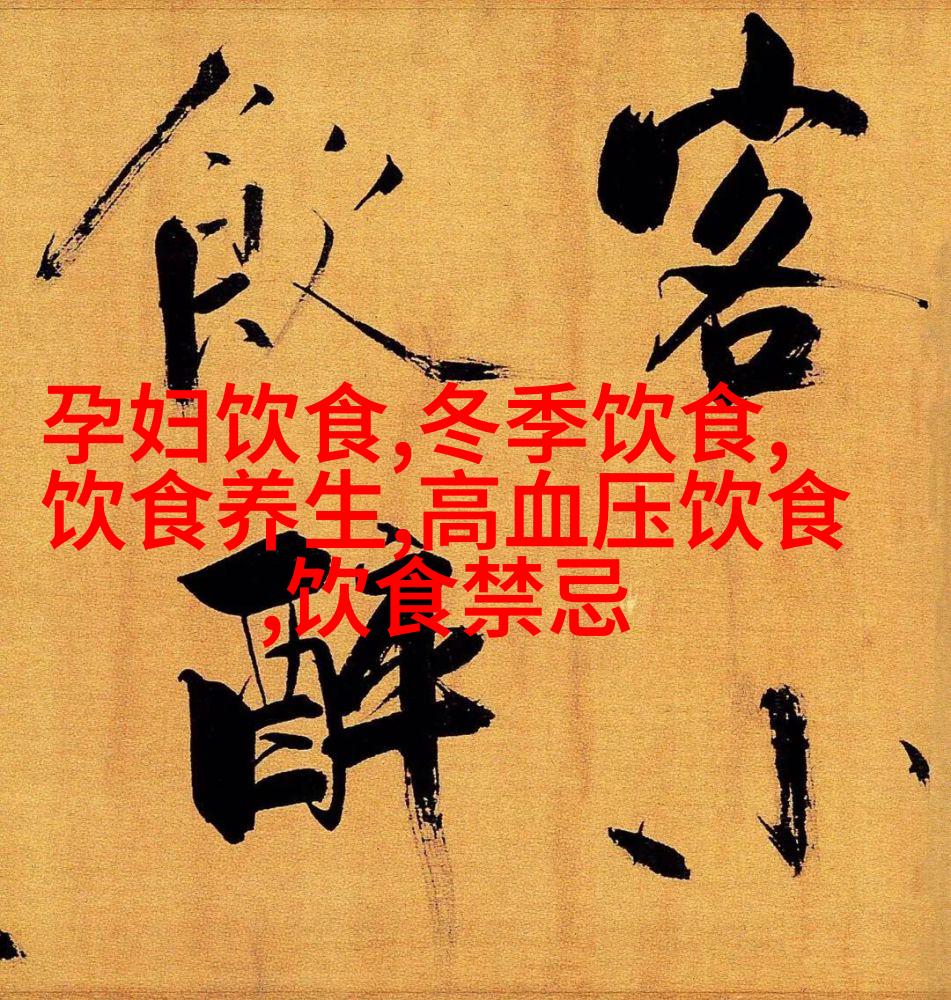 客小
飲醉
孕妇饮食,冬季饮食,
饮食养生,高血压饮食
,饮食禁忌